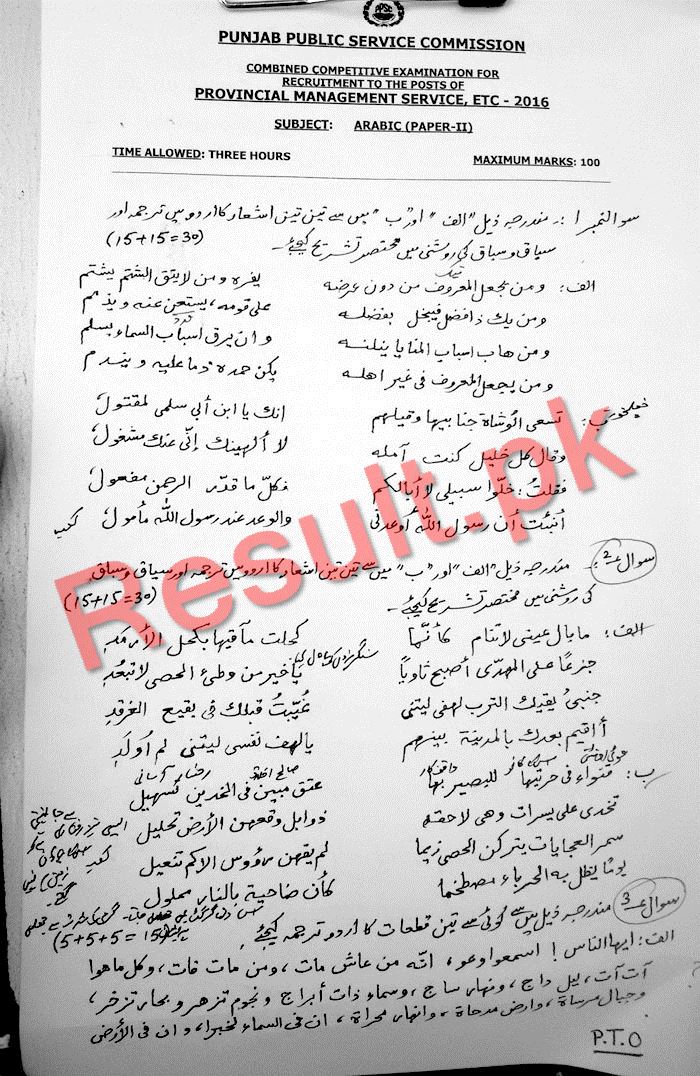 PPSC
PUNJAB PUBLIC SERVICE COMMISSION
COMBINED COMPETITIVE EXAMINATION FOR
RECRUITMENT TO THE POSTS OF
PROVINCIAL MANAGEMENT SERVICE, ETC - 2016
SUBJECT: ARABIC (PAPER-II)
TIME ALLOWED: THREE HOURS MAXIMUM MARKS: 100
سوالنمبر ا :۔ مندرجہ ذیل "الف" اور "ب" میں سے تین تین اشعار کا اردو میں ترجمہ اور
سیاق وسباق کی روشنی میں مختصر تشریح کیجئے۔ (15+15=30)
الف: ومن يجعل المعروف من دون عرضه يفره ومن لا يتق الشتم يشتم
ومن يك ذا فضل فيبخل بفضله على قومه، يستغن عنه ويذمم
ومن هاب اسباب المنايا ينلنه وان يرق اسباب السماء بسلم
ومن يجعل المعروف في غير اهله يكن حمده ذما عليه ويندم
ب: تسعى الوشاة جنابيها وقيلهم انك يا ابن أبي سلمى لمقتول
وقال كل خليل كنت آمله لا ألهينك إنّي عنك مشغول
فقلتُ: خلّوا سبيلي لا أبا لكم فكلّ ما قدّر الرحمن مفعول
أنبئت أن رسول الله أوعدني والوعد عند رسول الله مأمول
سوال ۔2 مندرجہ ذیل "الف" اور "ب" میں سے تین تین اشعار کا اردو میں ترجمہ اور سیاق وسباق
کی روشنی میں مختصر تشریح کیجئے۔ (15+15=30)
الف: ما بال عيني لا تنام كأنّما كحلت مآقيها بكحل الأرمد
جزعًا على المهدّى أصبح ثاوياً يا خير من وطئ الحصى لا تبعد
جنبي يقيك الترب لهفي ليتني غُيّبتُ قبلك في بقيع الغرقد
أأقيم بعدك بالمدينة بينهم يا لهف نفسي ليتني لم أولد
ب: قنواء في حرتيها للبصير بها عتق مبين في الخدين تسهيل
تخدى على يسرات وهي لاحقة ذوابل وقعهن الأرض تحليل
سمر العجايات يتركن الحصى زيما لم يقهن رؤوس الاكم تنعيل
يومًا يظل به الحرباء مصطخما كأن ضاحية بالنار مملول
سوال ۔3 مندرجہ ذیل میں سے کوئی سے تین قطعات کا اردو ترجمہ کیجئے۔ (5+5+5=15)
الف: ايها الناس! اسمعوا وعوا، انه من عاش مات، ومن مات فات، وكل ما هو
آت آت، ليل داج، ونهار ساج، وسماء ذات أبراج ونجوم تزهر وبحار تزخر،
وجبال مرساة، وارض مدحاة، وانهار مجراة، ان في السماء لخبرا، وان في الأرض
P.T.O
Result.pk